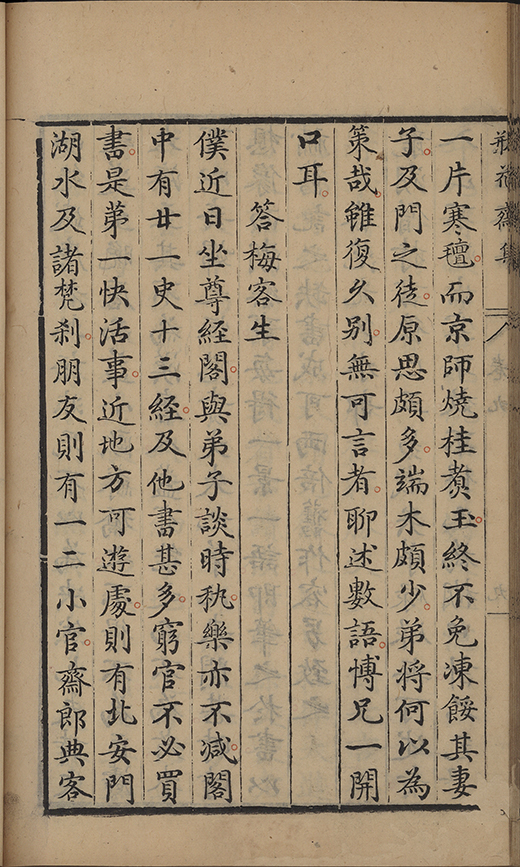 瓶花齋集
卷九
九
一片寒氊而京師燒桂煑玉終不免凍餒其妻
子及門之徒原思頗多端木頗少弟將何以為
策哉雖復久別無可言者聊述數語博兄一開
口耳
答梅客生
僕近日坐尊經閣與弟子談時秇樂亦不减閣
中有廿一史十三經及他書甚多窮官不必買
書是第一快活事近地方可遊處則有北安門
湖水及諸梵刹朋友則有一二小官齋郎典客